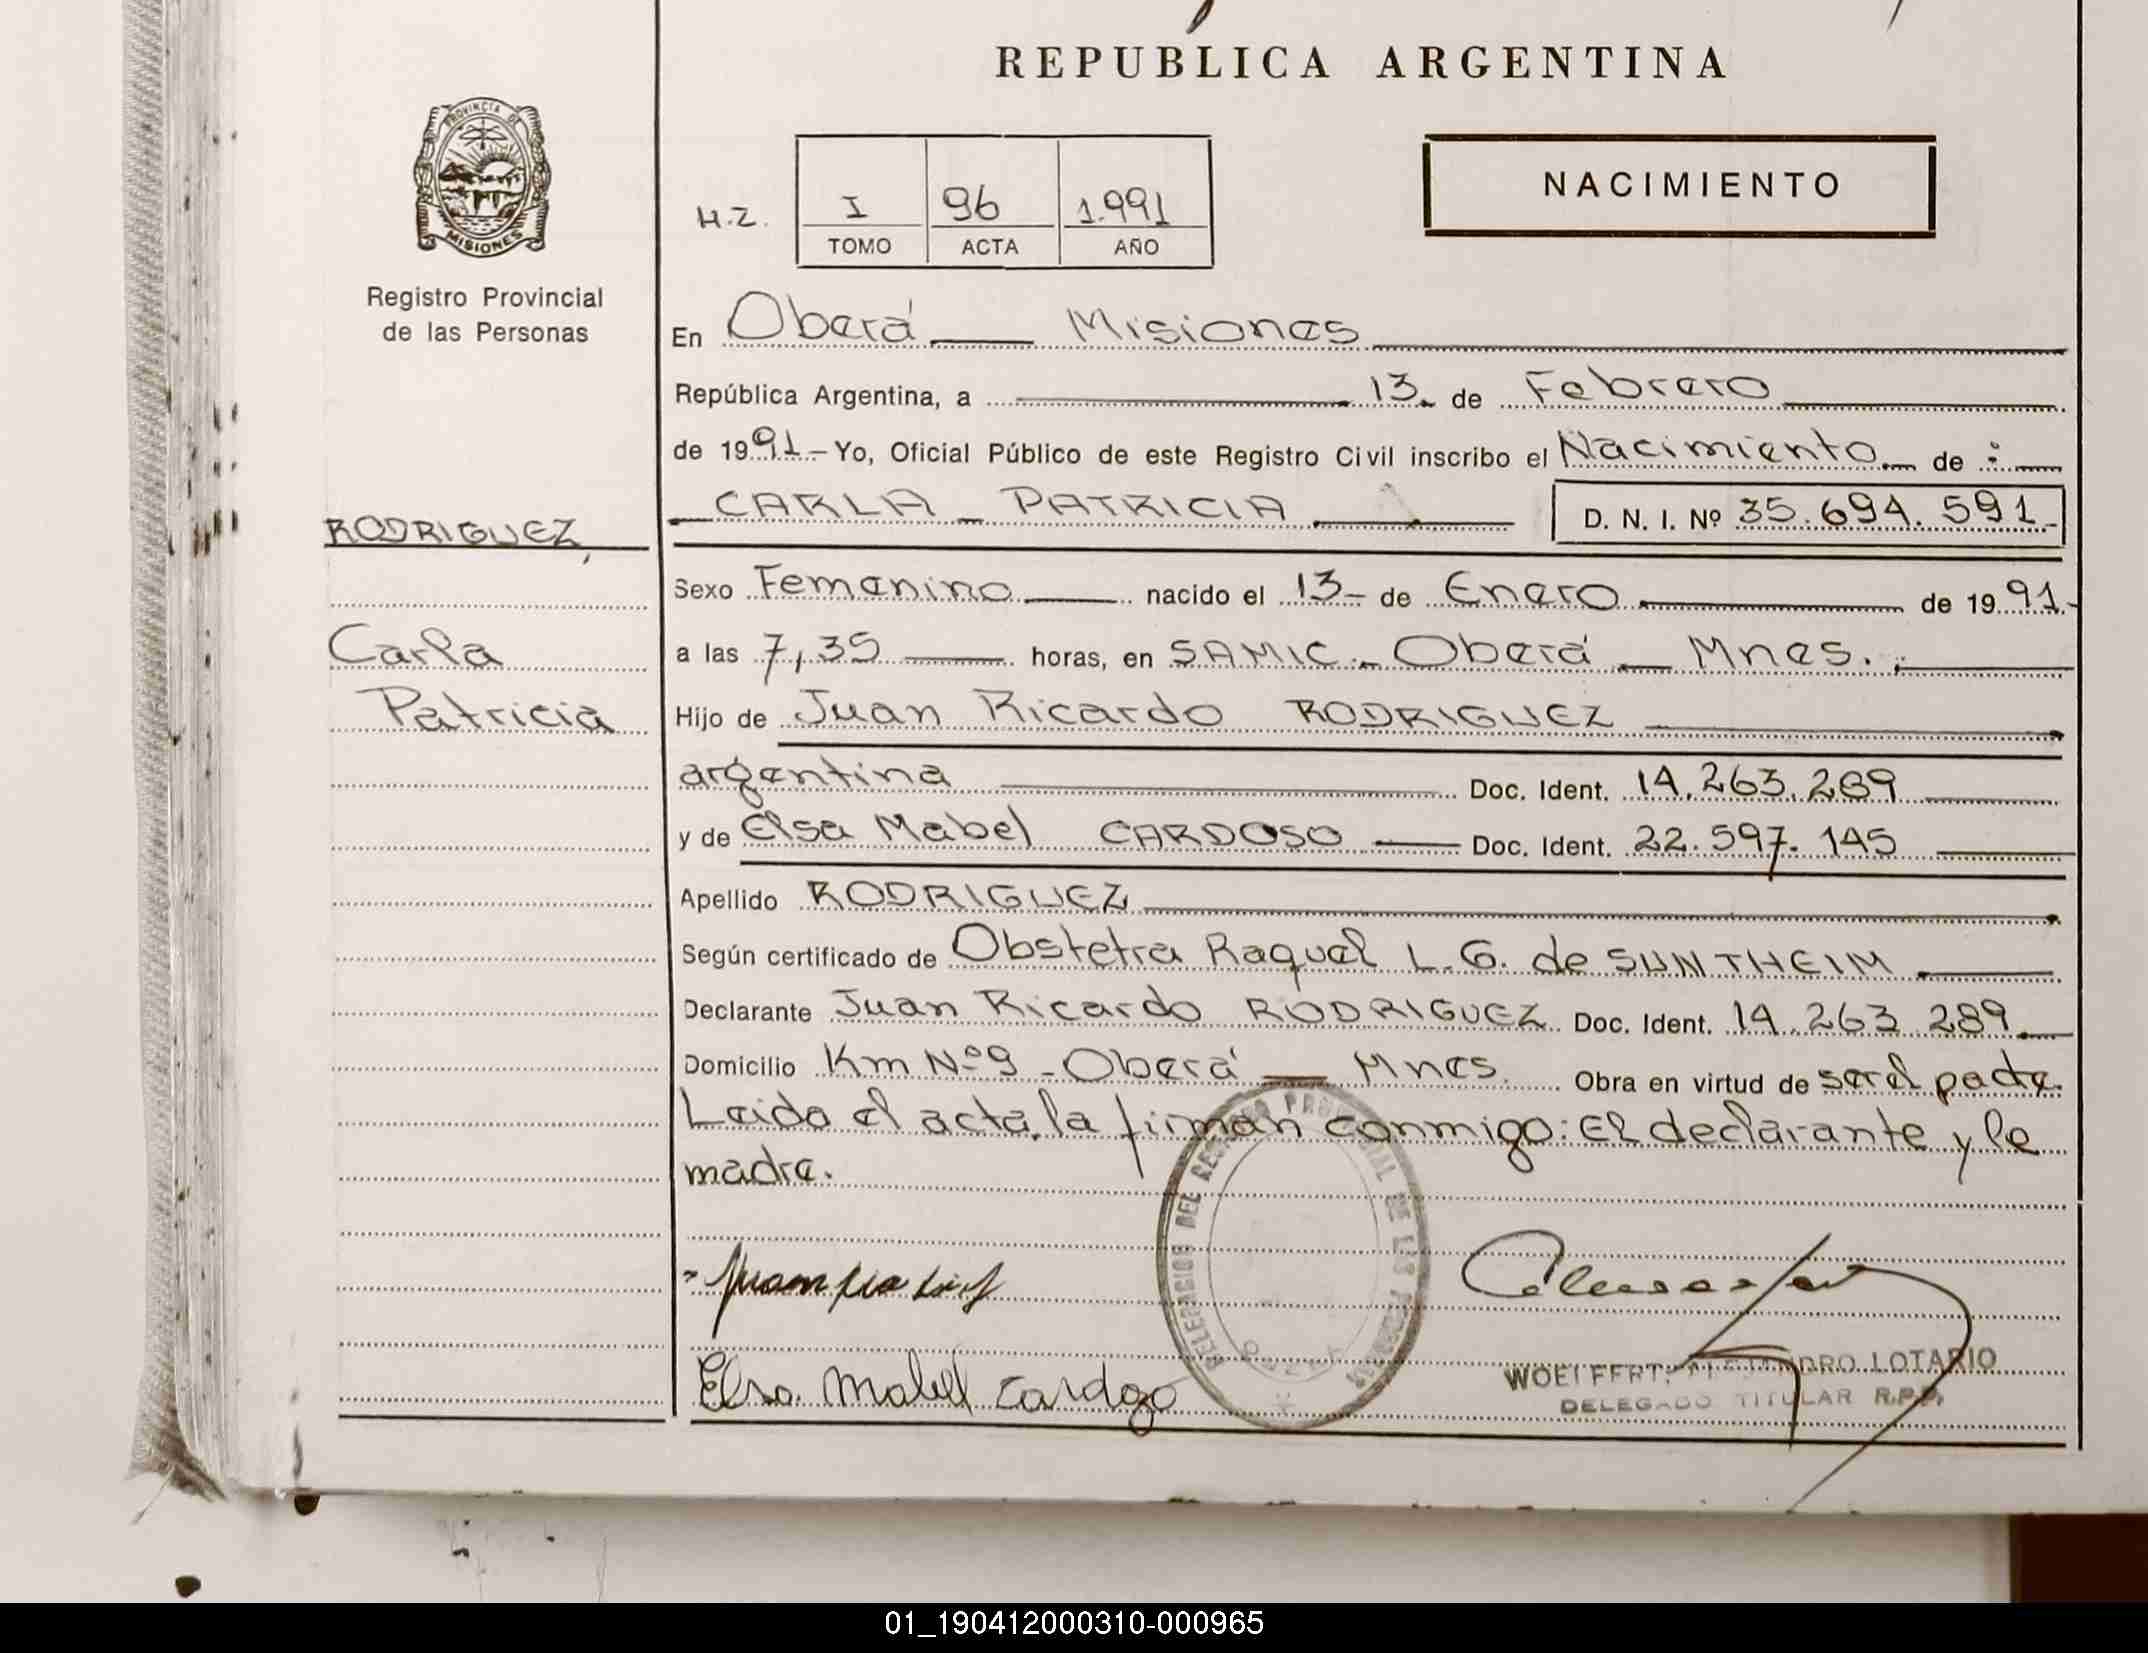 REPUBLICA ARGENTINA
PROVINCIA DE
MISIONES
Registro Provincial
de las Personas
H.Z.
I 96 1.991
TOMO ACTA AÑO
NACIMIENTO
En Oberá — Misiones
República Argentina, a — 13. de Febrero
de 1991 — Yo, Oficial Público de este Registro Civil inscribo el Nacimiento. de :
CARLA - PATRICIA — D. N. I. Nº 35.694.591.-
RODRIGUEZ,
Carla
Patricia
Sexo Femenino — nacido el 13- de Enero — de 1991.-
a las 7,35 — horas, en SAMIC.- Oberá - Mnes.
Hijo de Juan Ricardo RODRIGUEZ
argentina — Doc. Ident. 14.263.289
y de Elsa Mabel CARDOSO — Doc. Ident. 22.597.145
Apellido RODRIGUEZ
Según certificado de Obstetra Raquel L. G. de SUNTHEIM
Declarante Juan Ricardo RODRIGUEZ Doc. Ident. 14.263.289.
Domicilio Km Nº 9 - Oberá — Mnes. Obra en virtud de ser el padre.
Leido el acta, la firman conmigo: El declarante y la
madre.
DELEGACION DEL REGISTRO PROVINCIAL DE LAS PERSONAS
Elsa Mabel Cardozo
WOELFFERT, ALEJANDRO LOTARIO
DELEGADO TITULAR R.P.P.
01_190412000310-000965